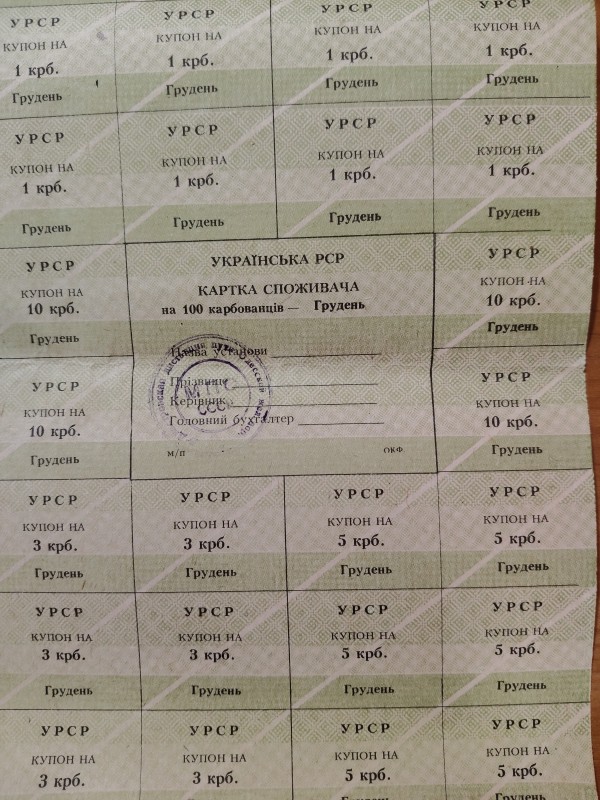 УРСР УРСР УРСР УРСР
КУПОН НА КУПОН НА КУПОН НА КУПОН НА
1 крб. 1 крб. 1 крб. 1 крб.
Грудень Грудень Грудень Грудень
УРСР УРСР УРСР УРСР
КУПОН НА КУПОН НА КУПОН НА КУПОН НА
1 крб. 1 крб. 1 крб. 1 крб.
Грудень Грудень Грудень Грудень
УРСР
КУПОН НА
10 крб.
Грудень
УРСР
КУПОН НА
10 крб.
Грудень
УКРАЇНСЬКА РСР
КАРТКА СПОЖИВАЧА
на 100 карбованців — Грудень
Назва установи
Прізвище
Керівник
Головний бухгалтер
м/п ОКФ
МПС
СССР
УРСР
КУПОН НА
10 крб.
Грудень
УРСР
КУПОН НА
10 крб.
Грудень
УРСР УРСР УРСР УРСР
КУПОН НА КУПОН НА КУПОН НА КУПОН НА
3 крб. 3 крб. 5 крб. 5 крб.
Грудень Грудень Грудень Грудень
УРСР УРСР УРСР УРСР
КУПОН НА КУПОН НА КУПОН НА КУПОН НА
3 крб. 3 крб. 5 крб. 5 крб.
Грудень Грудень Грудень Грудень
УРСР УРСР УРСР УРСР
КУПОН НА КУПОН НА КУПОН НА КУПОН НА
3 крб. 3 крб. 5 крб. 5 крб.
Грудень Грудень